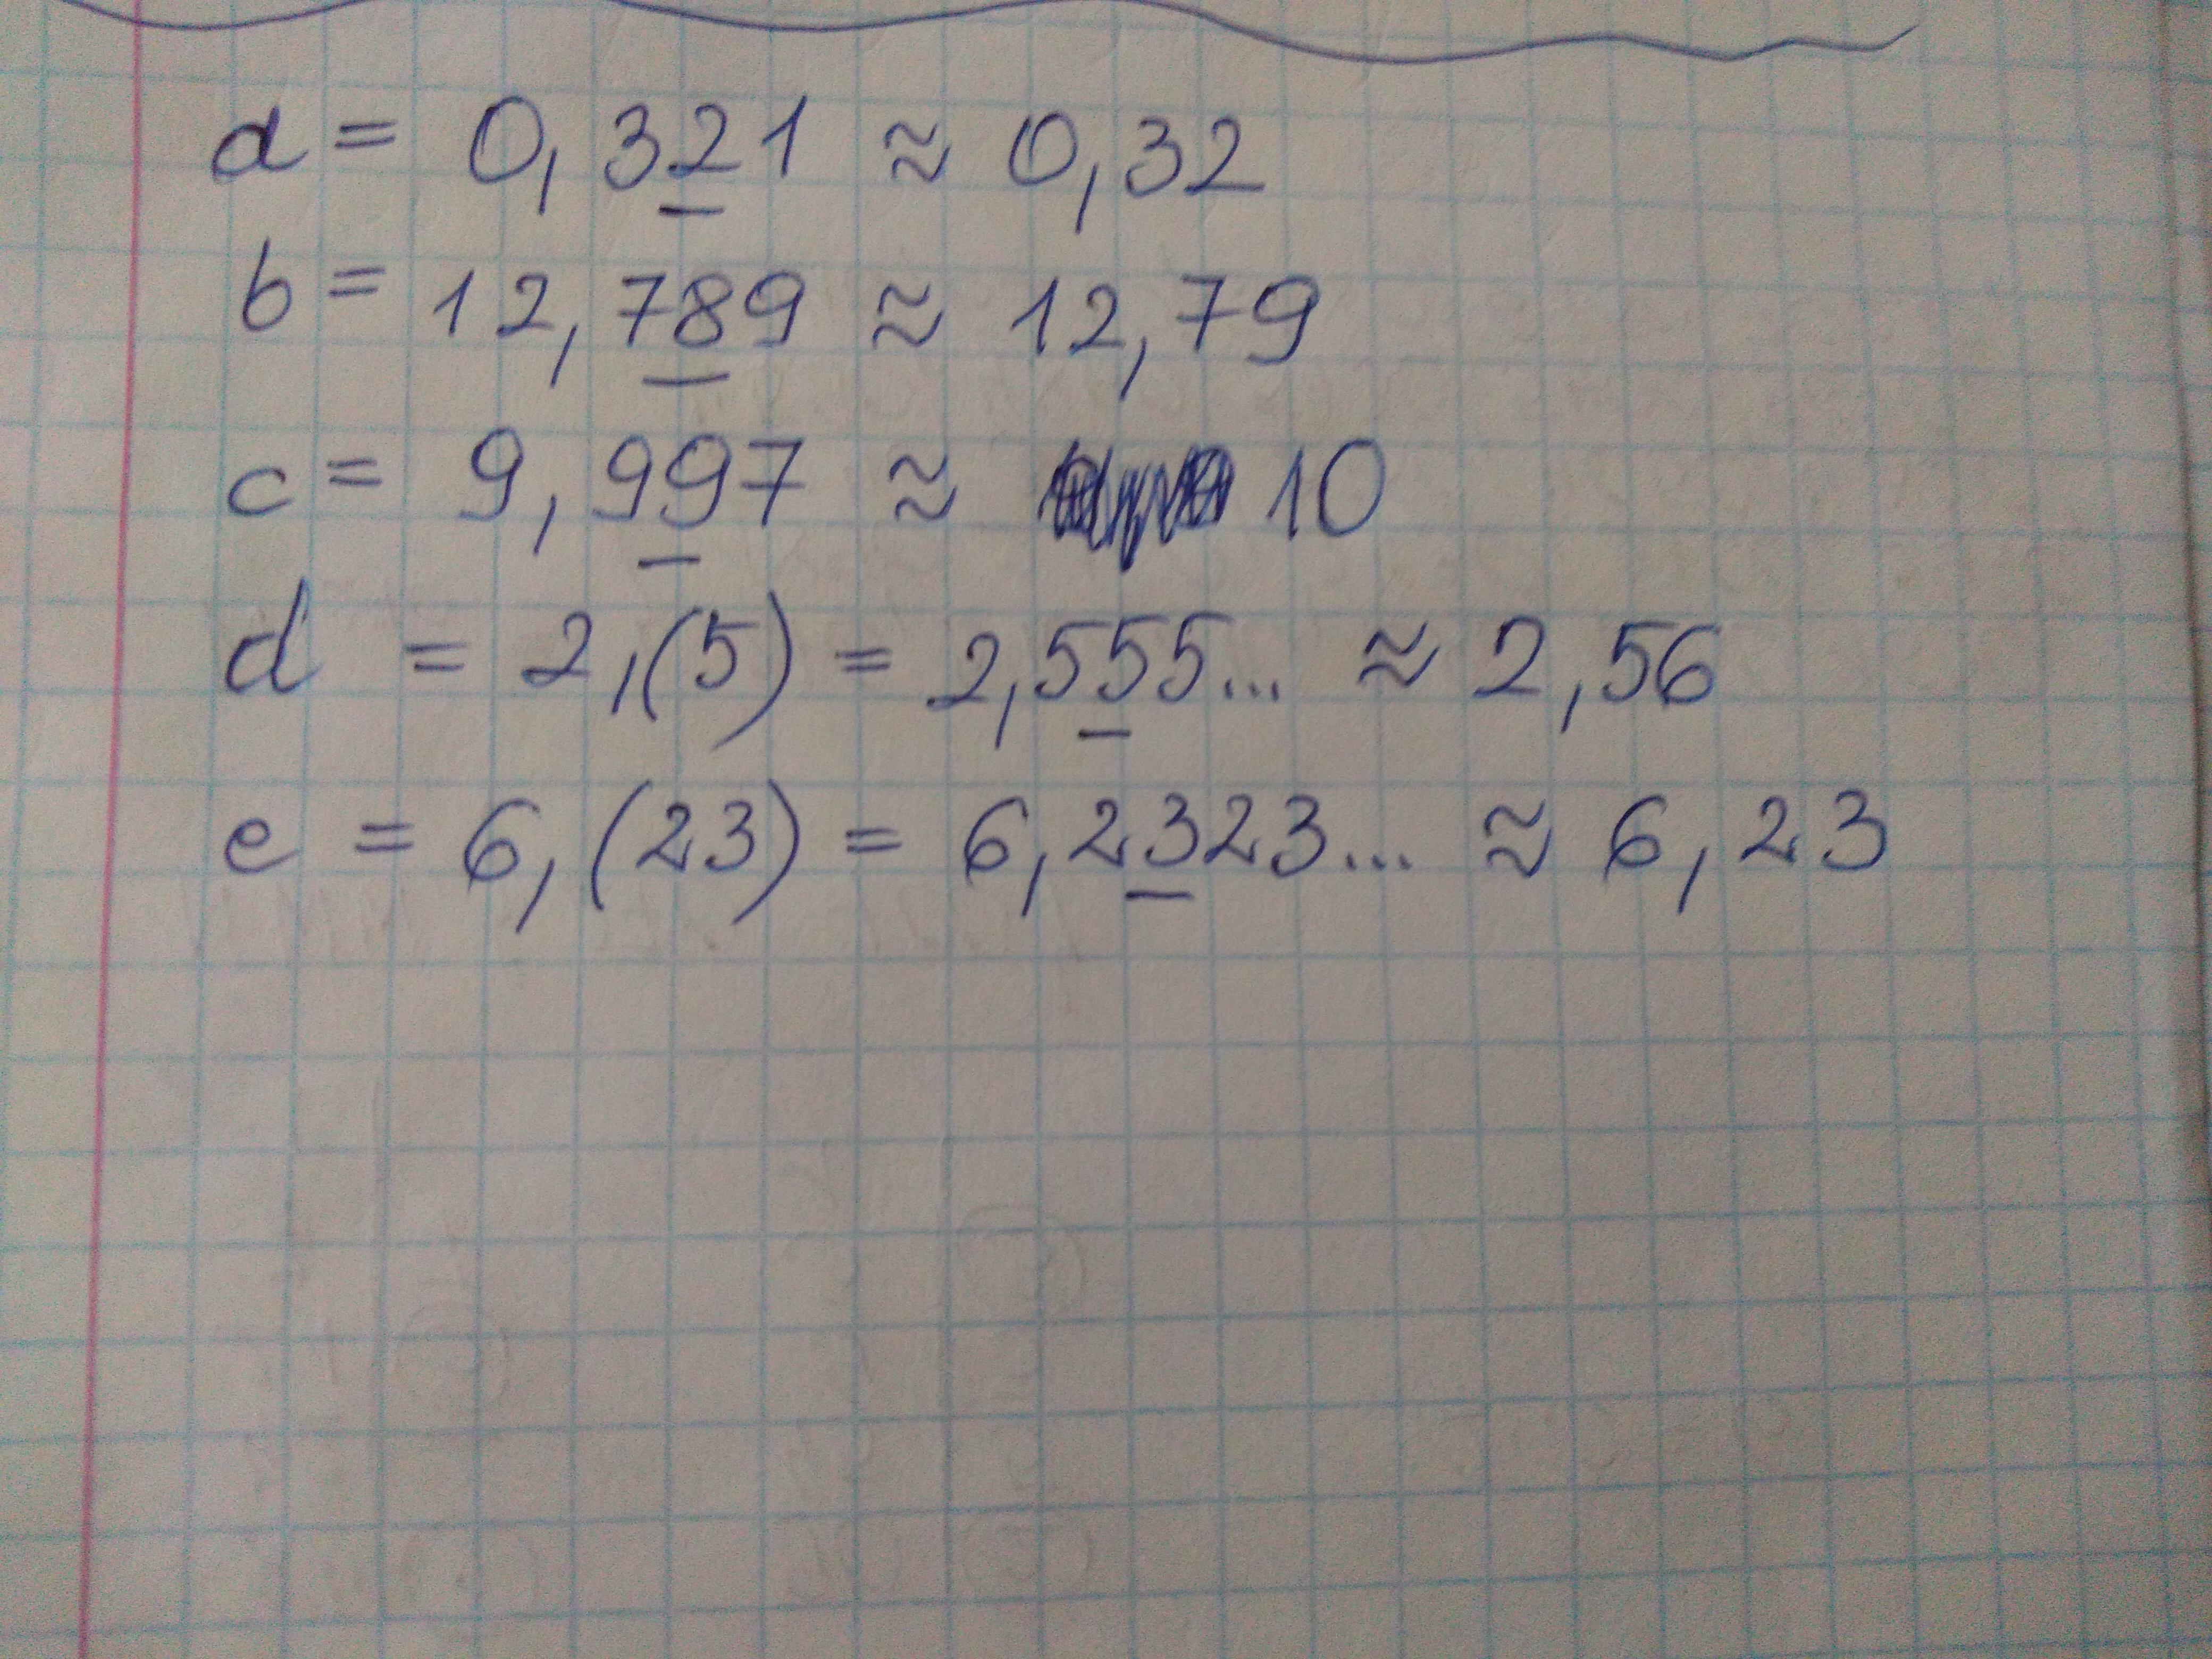 a = 0,321 ≈ 0,32
b = 12,789 ≈ 12,79
c = 9,997 ≈ 10
d = 2,(5) = 2,555... ≈ 2,56
e = 6,(23) = 6,2323... ≈ 6,23